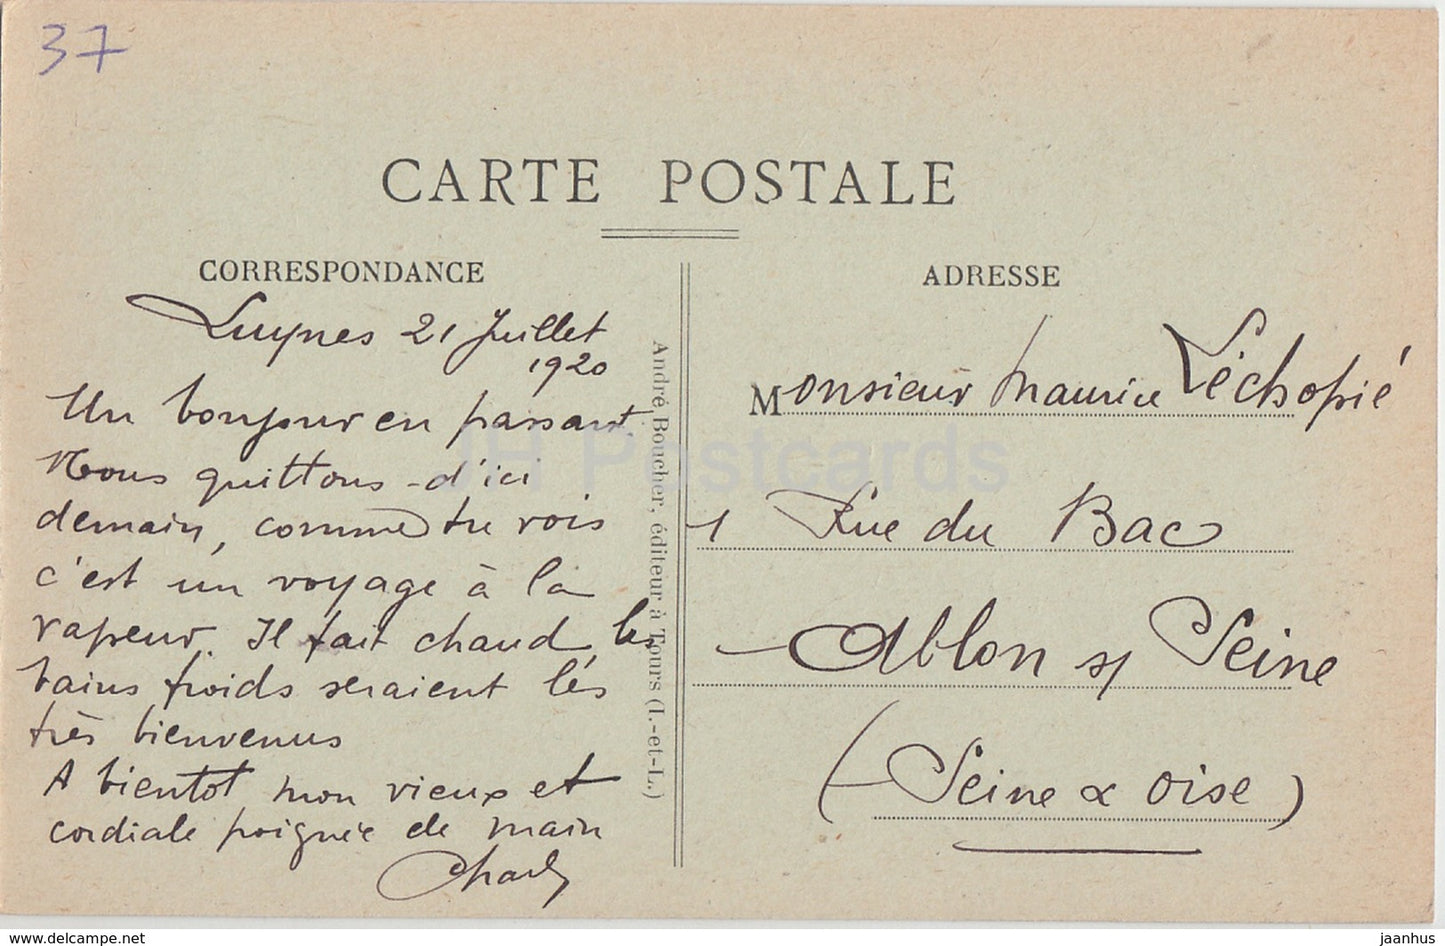 37
CARTE POSTALE
CORRESPONDANCE
Luynes 21 Juillet
1920
Un bonjour en passant.
Nous quittons d'ici
demain, comme tu vois
c'est un voyage à la
vapeur. Il fait chaud, les
bains froids seraient les
très bienvenus
A bientot, mon vieux et
cordiale poignée de main
Charly
André Boucher, éditeur à Tours (I.-et-L.)
ADRESSE
Monsieur Maurice Léchopié
1 Rue du Bac
Ablon s/ Seine
(Seine & Oise)
JH Postcards
www.delcampe.net
jaanhus